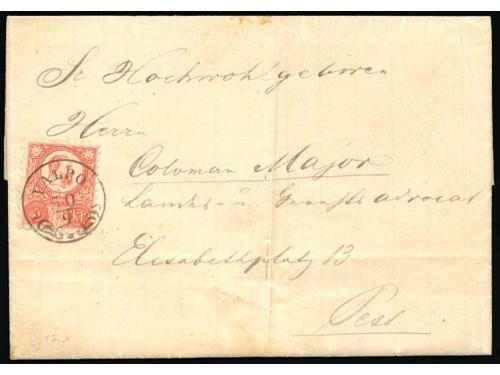 Sr Hochwohlgeboren
Herrn
Coloman Major
Landes- u. Gerichts advocat
Elisabethplatz 13
Pest
VALPO
20
9
5 KR
12.X